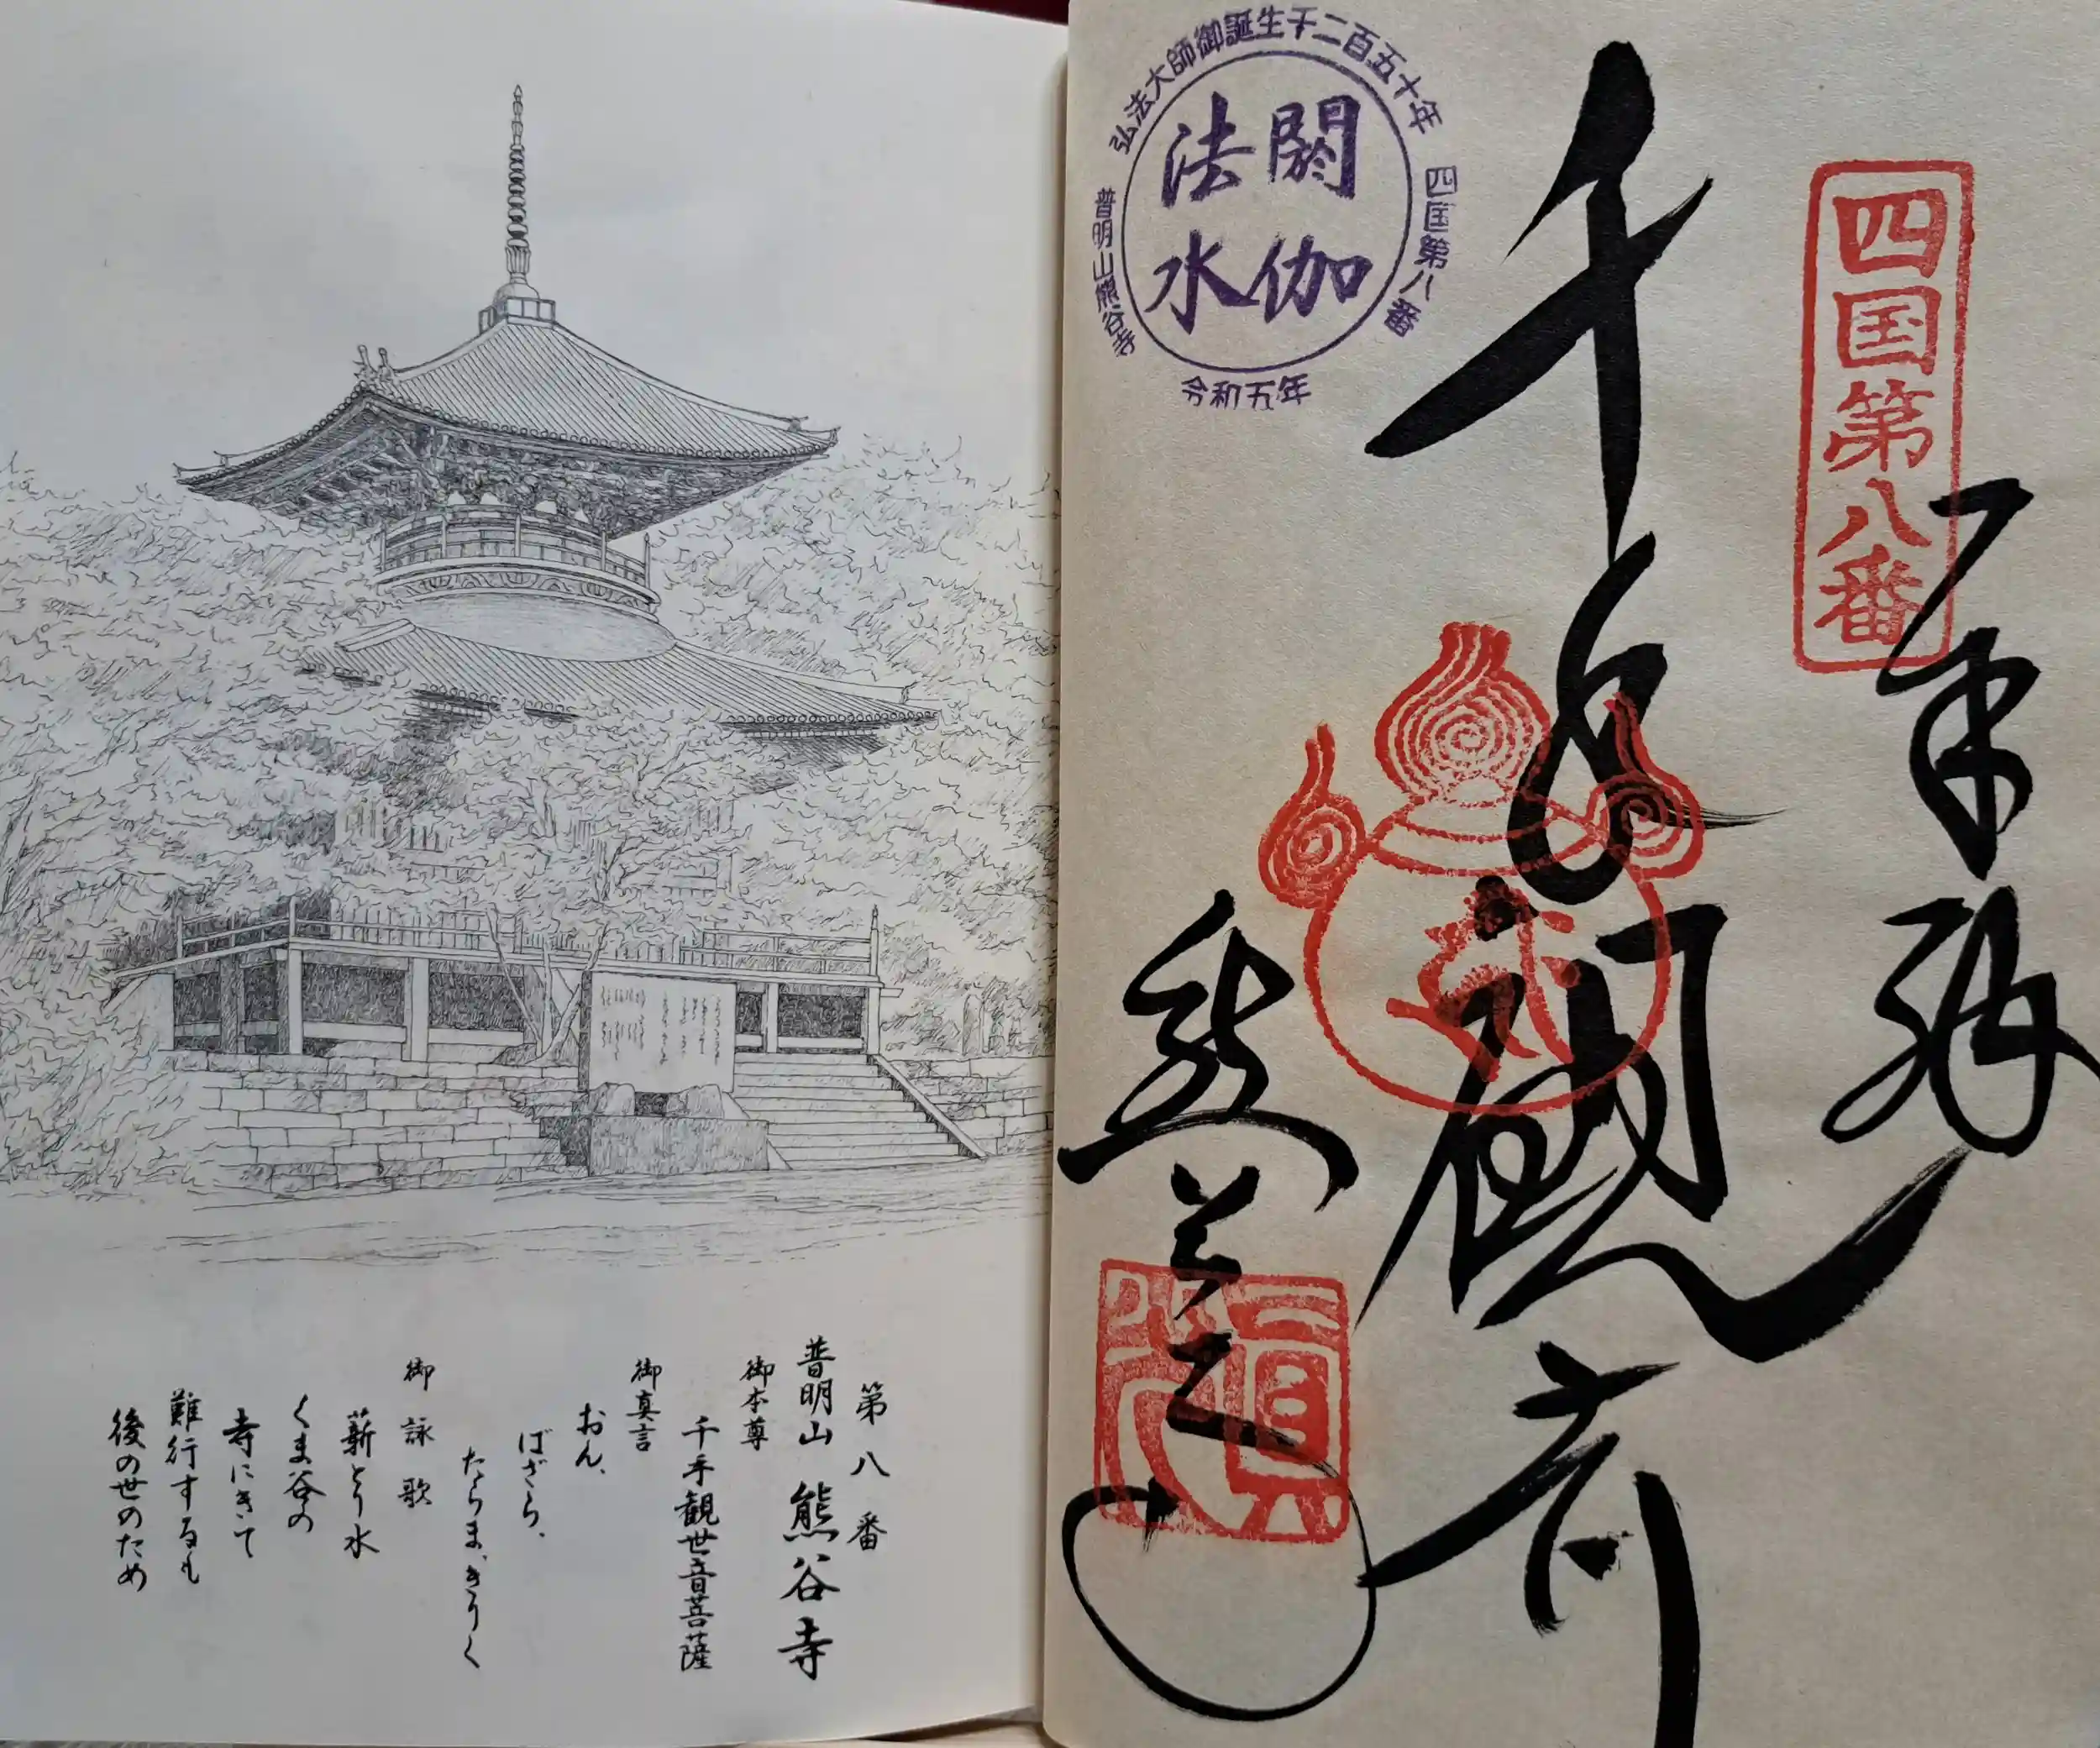 第八番
普明山 熊谷寺
御本尊
千手観世音菩薩
御真言
おん、
ばざら、
たらま、きりく
御詠歌
薪とり水
くま谷の
寺にきて
難行するも
後の世のため
弘法大師御誕生千二百五十年
四国第八番
普明山熊谷寺
令和五年
閼伽
法水
四国第八番
奉納
熊谷寺